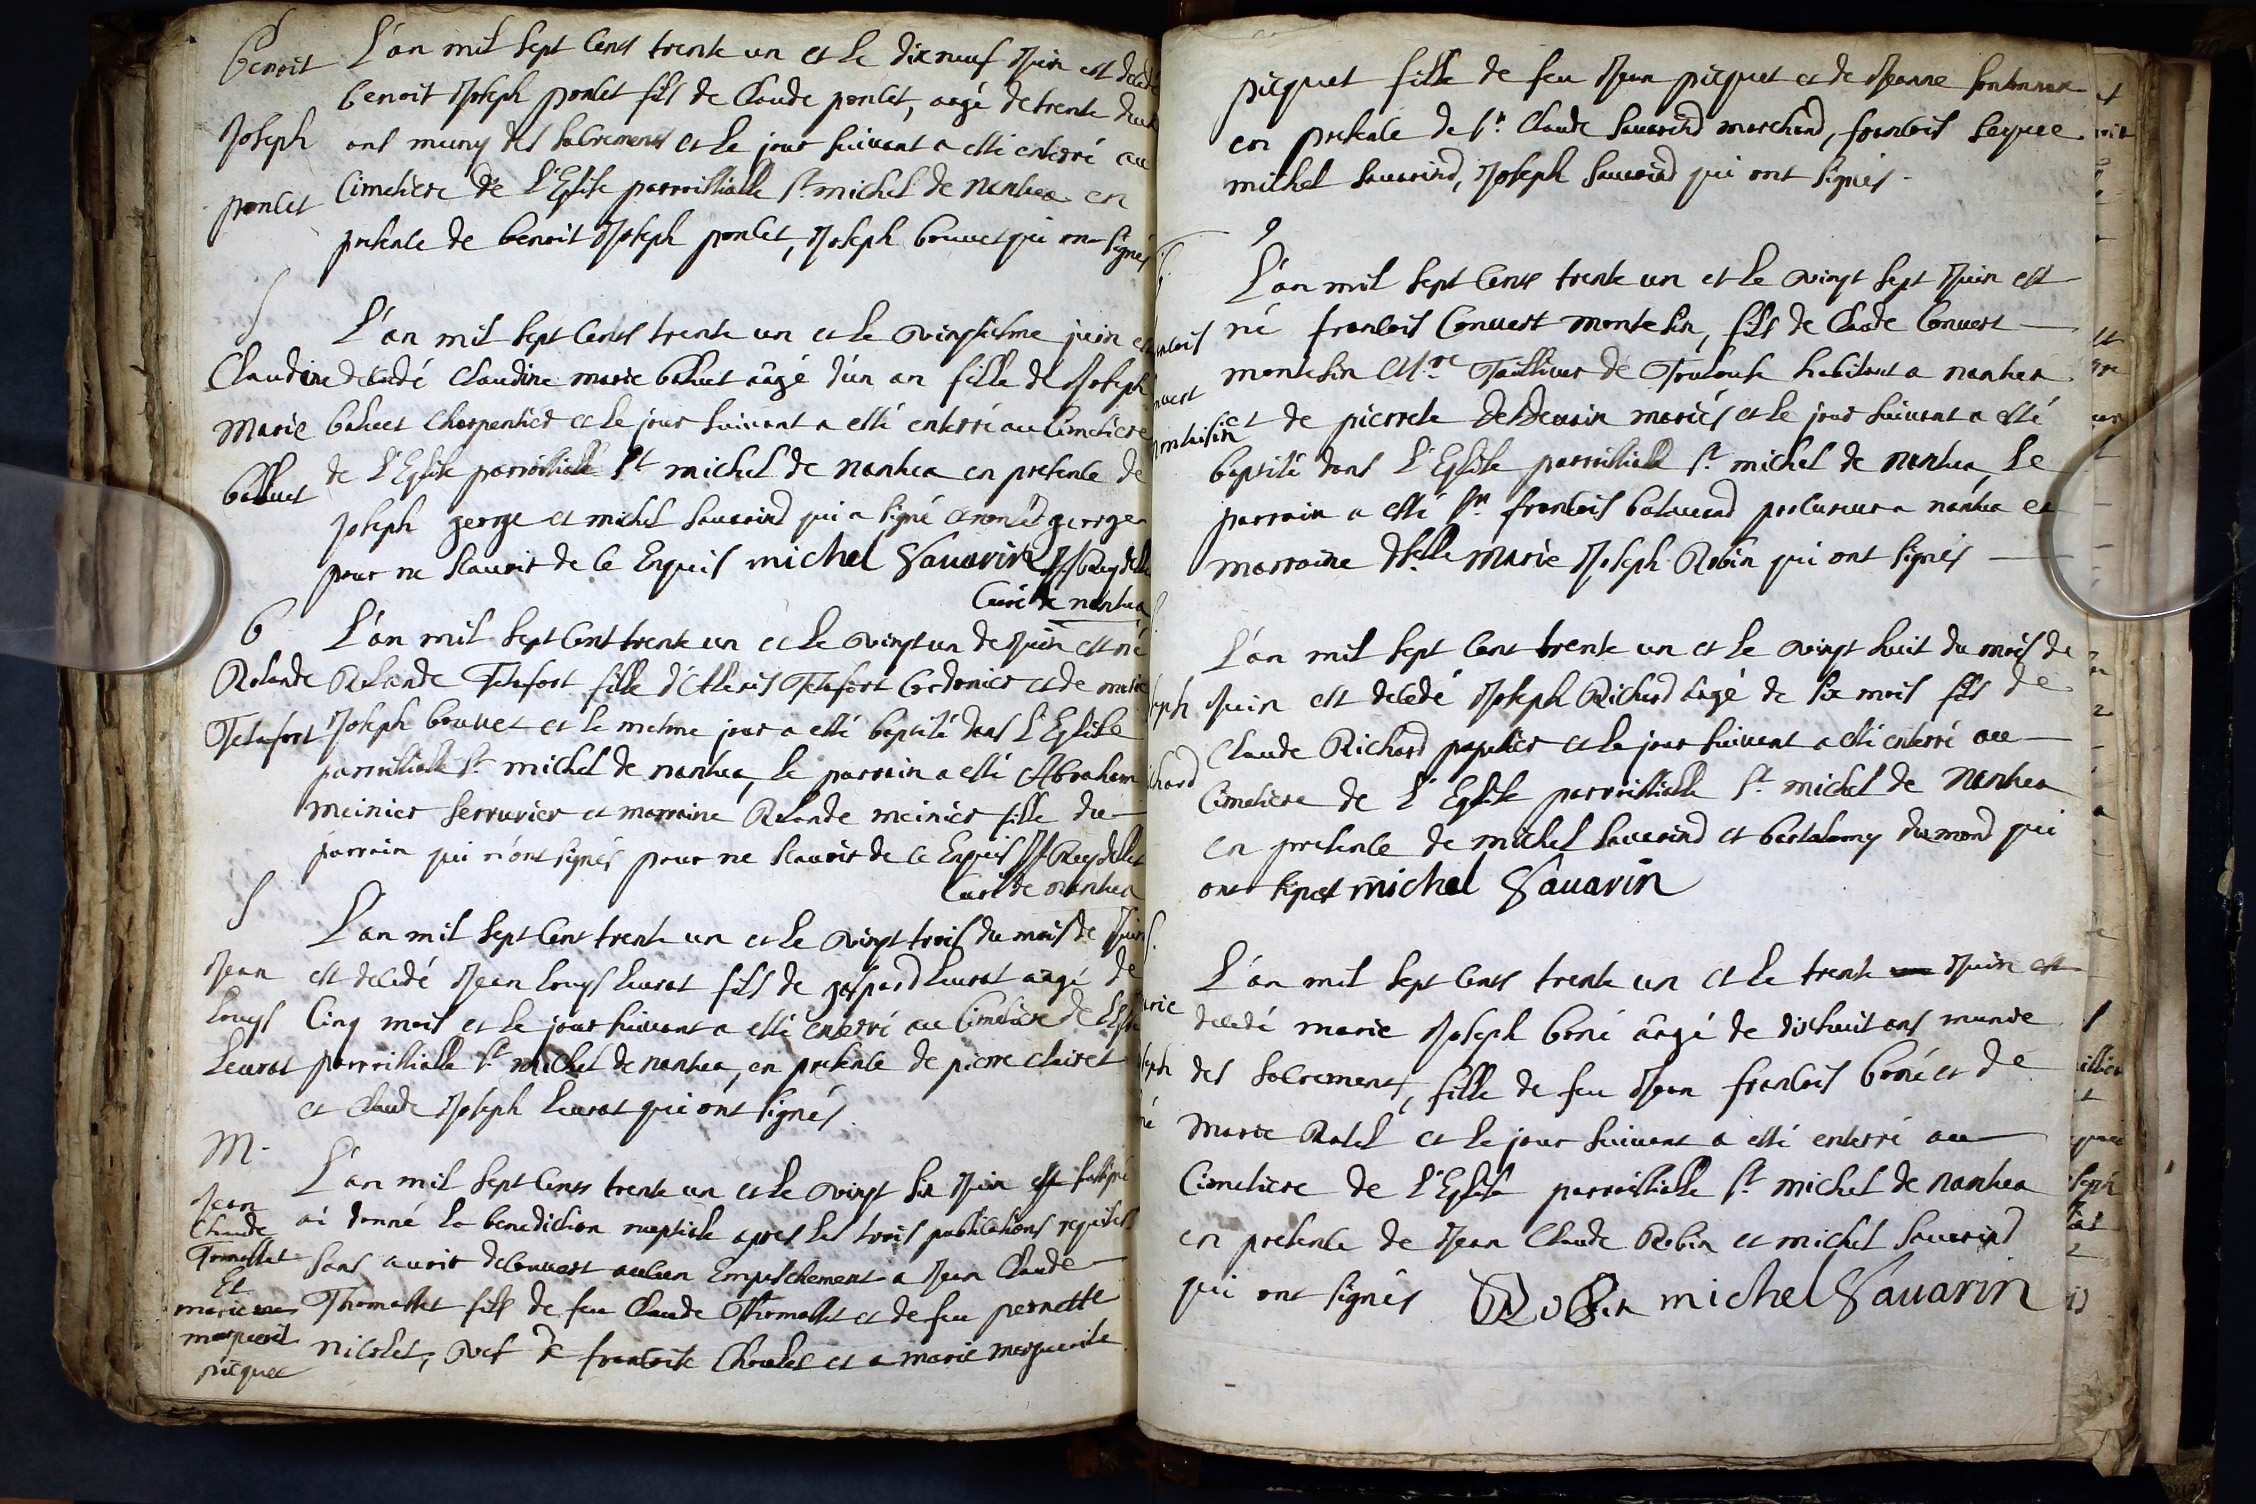 Benoit
Joseph
ponlet
L'an mil sept cents trente un et le dix neuf Juin est decedé
benoit Joseph ponlet fils de Claude ponlet, aagé de trente deux
ans muny des sacrements et le jour suivant a esté enterré au
Cimetiere de L'Eglise parroissialle St. michel de nantua en
presence de benoit Joseph ponlet, Joseph bouvet qui ont signés
S
Claudine
Marie
balluet
L'an mil sept cents trente un et le vingtiesme juin est
decedé claudine marie balluet aâgé d'un an fille de Joseph
balluet charpentier et le jour suivant a esté enterré au Cimetiere
de L'Eglise parroissialle St michel de nantua en presence de
Joseph george et michel Sauarind qui a signé et non led george
pour ne scauoir de ce Enquis michel Sauarin
Curé de nantua
b
Rolande
Telafort
L'an mil sept cent trente un et le vingt un de Juin est né
Rolande Telafort fille d'Alexis Telafort Cordonier et de marie
Joseph bouvet et le mesme jour a esté baptisé dans L'Eglise
parroissialle St. michel de nantua, le parrain a esté Abraham
meinier serrurier et marraine Rolande meinier fille du
parrain qui n'ont signés pour ne scauoir de ce Enquis
Curé de nantua
S
Jean
Louys
Leurat
L'an mil sept cent trente un et le vingt trois du mois de Juin
est decedé Jean Louys Leurat fils de gaspard Leurat aagé de
Cinq mois et le jour suivant a esté enterré au Cimetiere de L'Eglise
parroissialle St. michel de nantua, en presence de pierre clairet
et Claude Joseph Leurat qui ont signés.
M.
Jean
Claude
Tomasset
Et
marie
marguerit
picquet
L'an mil sept cents trente un et le vingt six Juin
ai donné la benediction nuptiale apres les trois publications requises
sans auoir decouuert aucun Empeschement a Jean Claude
Thomasset fils de feu Claude Thomasset et de feu pernette
nicolet, vef de francoise et a marie marguerite
picquet fille de feu Jean picquet et de Jeanne
en presence de Sr. Claude Sauarind marchand, francois
michel Sauarind, Joseph Sauarind qui ont signés.
L'an mil sept cents trente un et le vingt sept Juin est
né francois Convert montesin, fils de Claude Convert
montesin Tailleur de Toulouse habitant a nantua
et de pierrete mariés et le jour suivant a esté
baptisé dans L'Eglise parroissialle St. michel de nantua, Le
parrain a esté Sr. francois procureur a nantua et
marraine dlle. Marie Joseph Robin qui ont signés
L'an mil sept cent trente un et le vingt huit du mois de
Juin est decedé Joseph Richard aagé de six mois fils de
Claude Richard papetier et le jour suivant a esté enterré au
Cimetiere de L'Eglise parroissialle St. michel de nantua
en presence de michel Sauarind et bartelemy dumond qui
ont signés michel Sauarin
L'an mil sept cents trente un et le trente Juin est
decedé marie Joseph boné âagé de dixhuit ans munie
des sacrements, fille de feu Jean francois boné et de
Marie Ratel et le jour suivant a esté enterré au
Cimetiere de L'Eglise parroissialle St. michel de nantua
en presence de Jean Claude Robin et michel Sauarind
qui ont signés Robin michel Sauarin